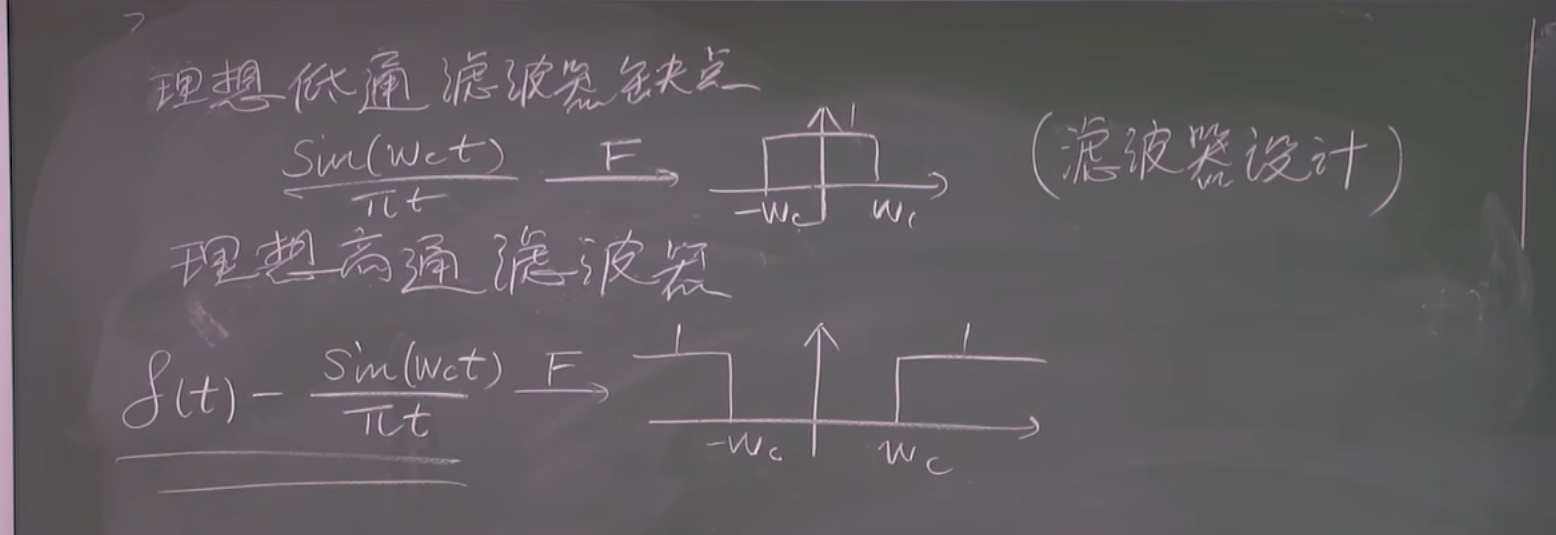 理想低通滤波器缺点
sin(wct)/πt F 1 -wc wc (滤波器设计)
理想高通滤波器
δ(t) - sin(wct)/πt F 1 1 -wc wc